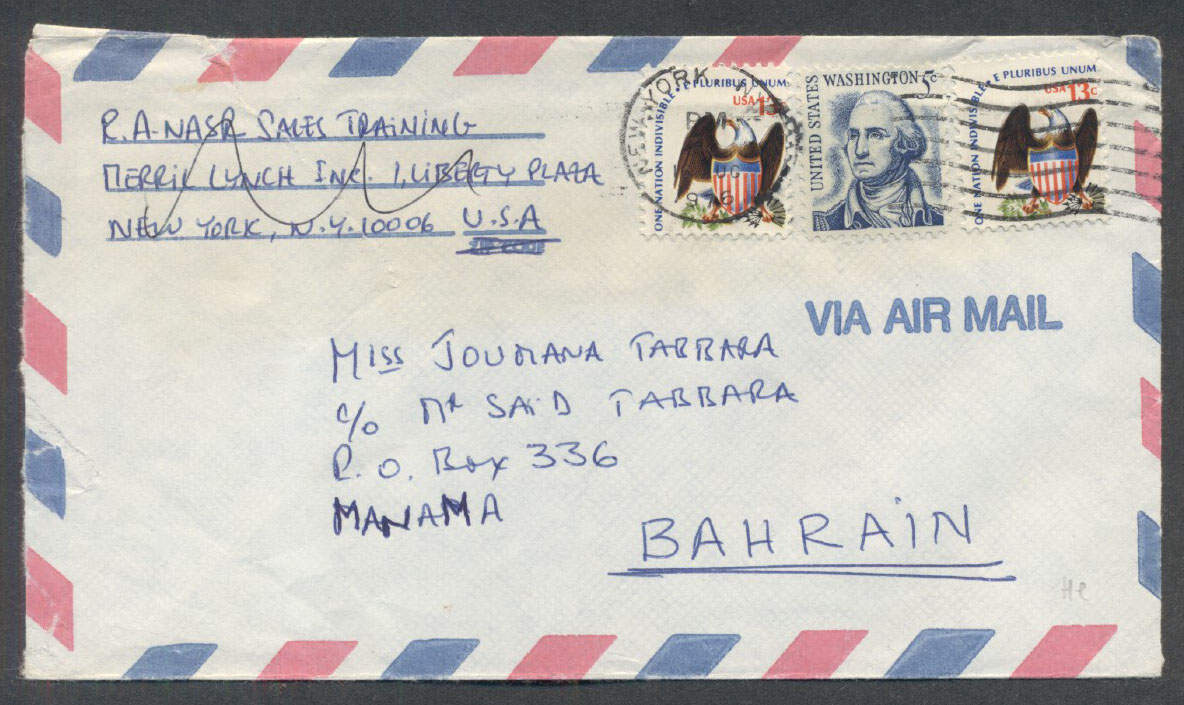 R.A. NASR SALES TRAINING
MERRIL LYNCH INC. 1, LIBERTY PLAZA
NEW YORK, N.Y. 10006 U.S.A
NEW YORK, N.Y.
PM
ONE NATION INDIVISIBLE • E PLURIBUS UNUM
USA 13c
UNITED STATES
WASHINGTON 5c
ONE NATION INDIVISIBLE • E PLURIBUS UNUM
USA 13c
VIA AIR MAIL
MISS JOUMANA TABBARA
c/o MR SAID TABBARA
P.O. Box 336
MANAMA
BAHRAIN
He